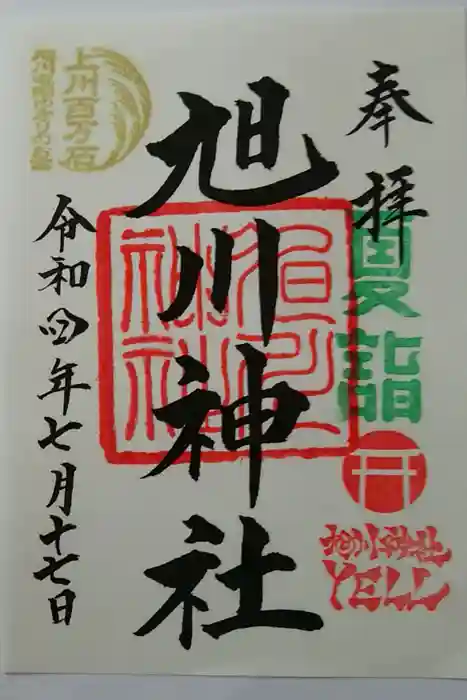 奉拝
夏詣
旭川神社
YELL
旭川神社
上川百万石
令和四年七月十七日